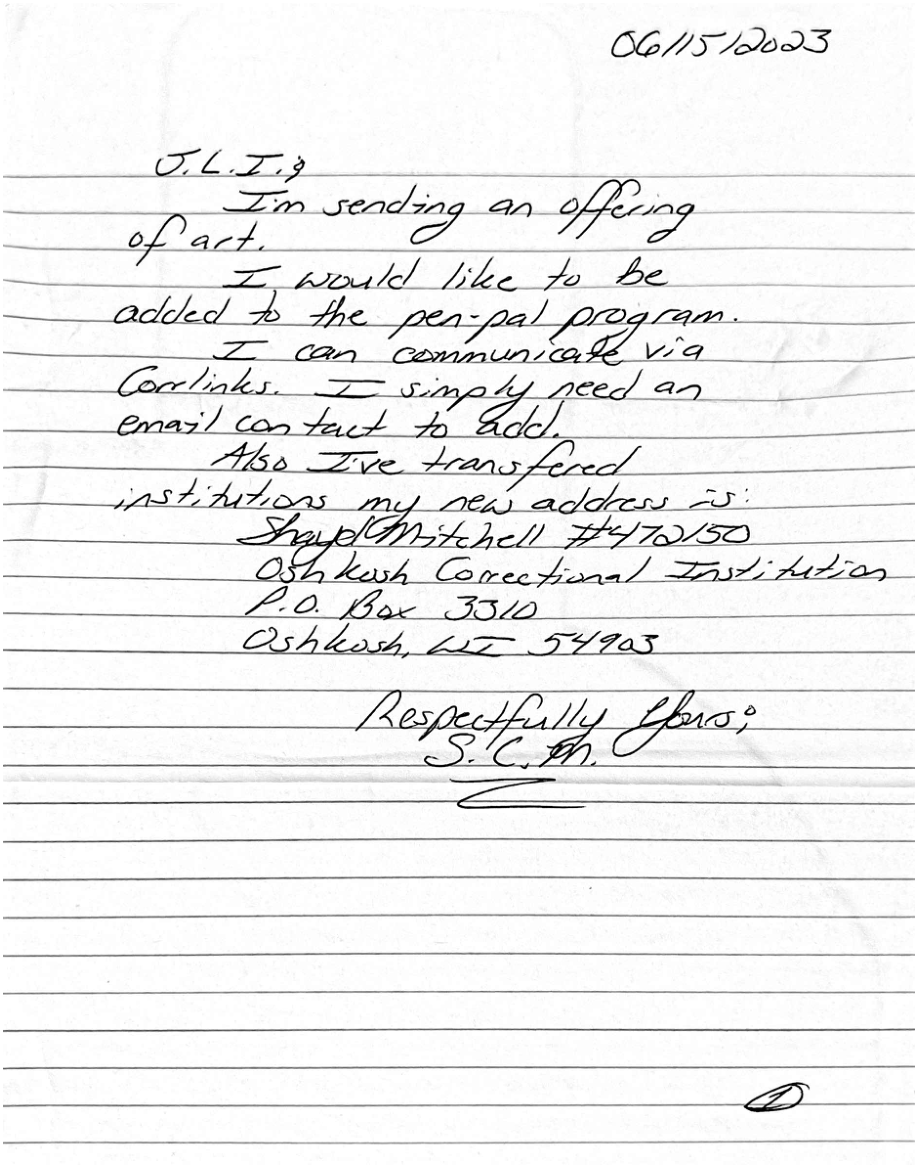 06/15/2023
J.L.I.;
I'm sending an offering
of art.
I would like to be
added to the pen-pal program.
I can communicate via
Corrlinks. I simply need an
email contact to add.
Also I've transfered
institutions my new address is:
Shayd Mitchell #472150
Oshkosh Correctional Institution
P.O. Box 3310
Oshkosh, WI 54903
Respectfully Yours;
S.C.M.
1